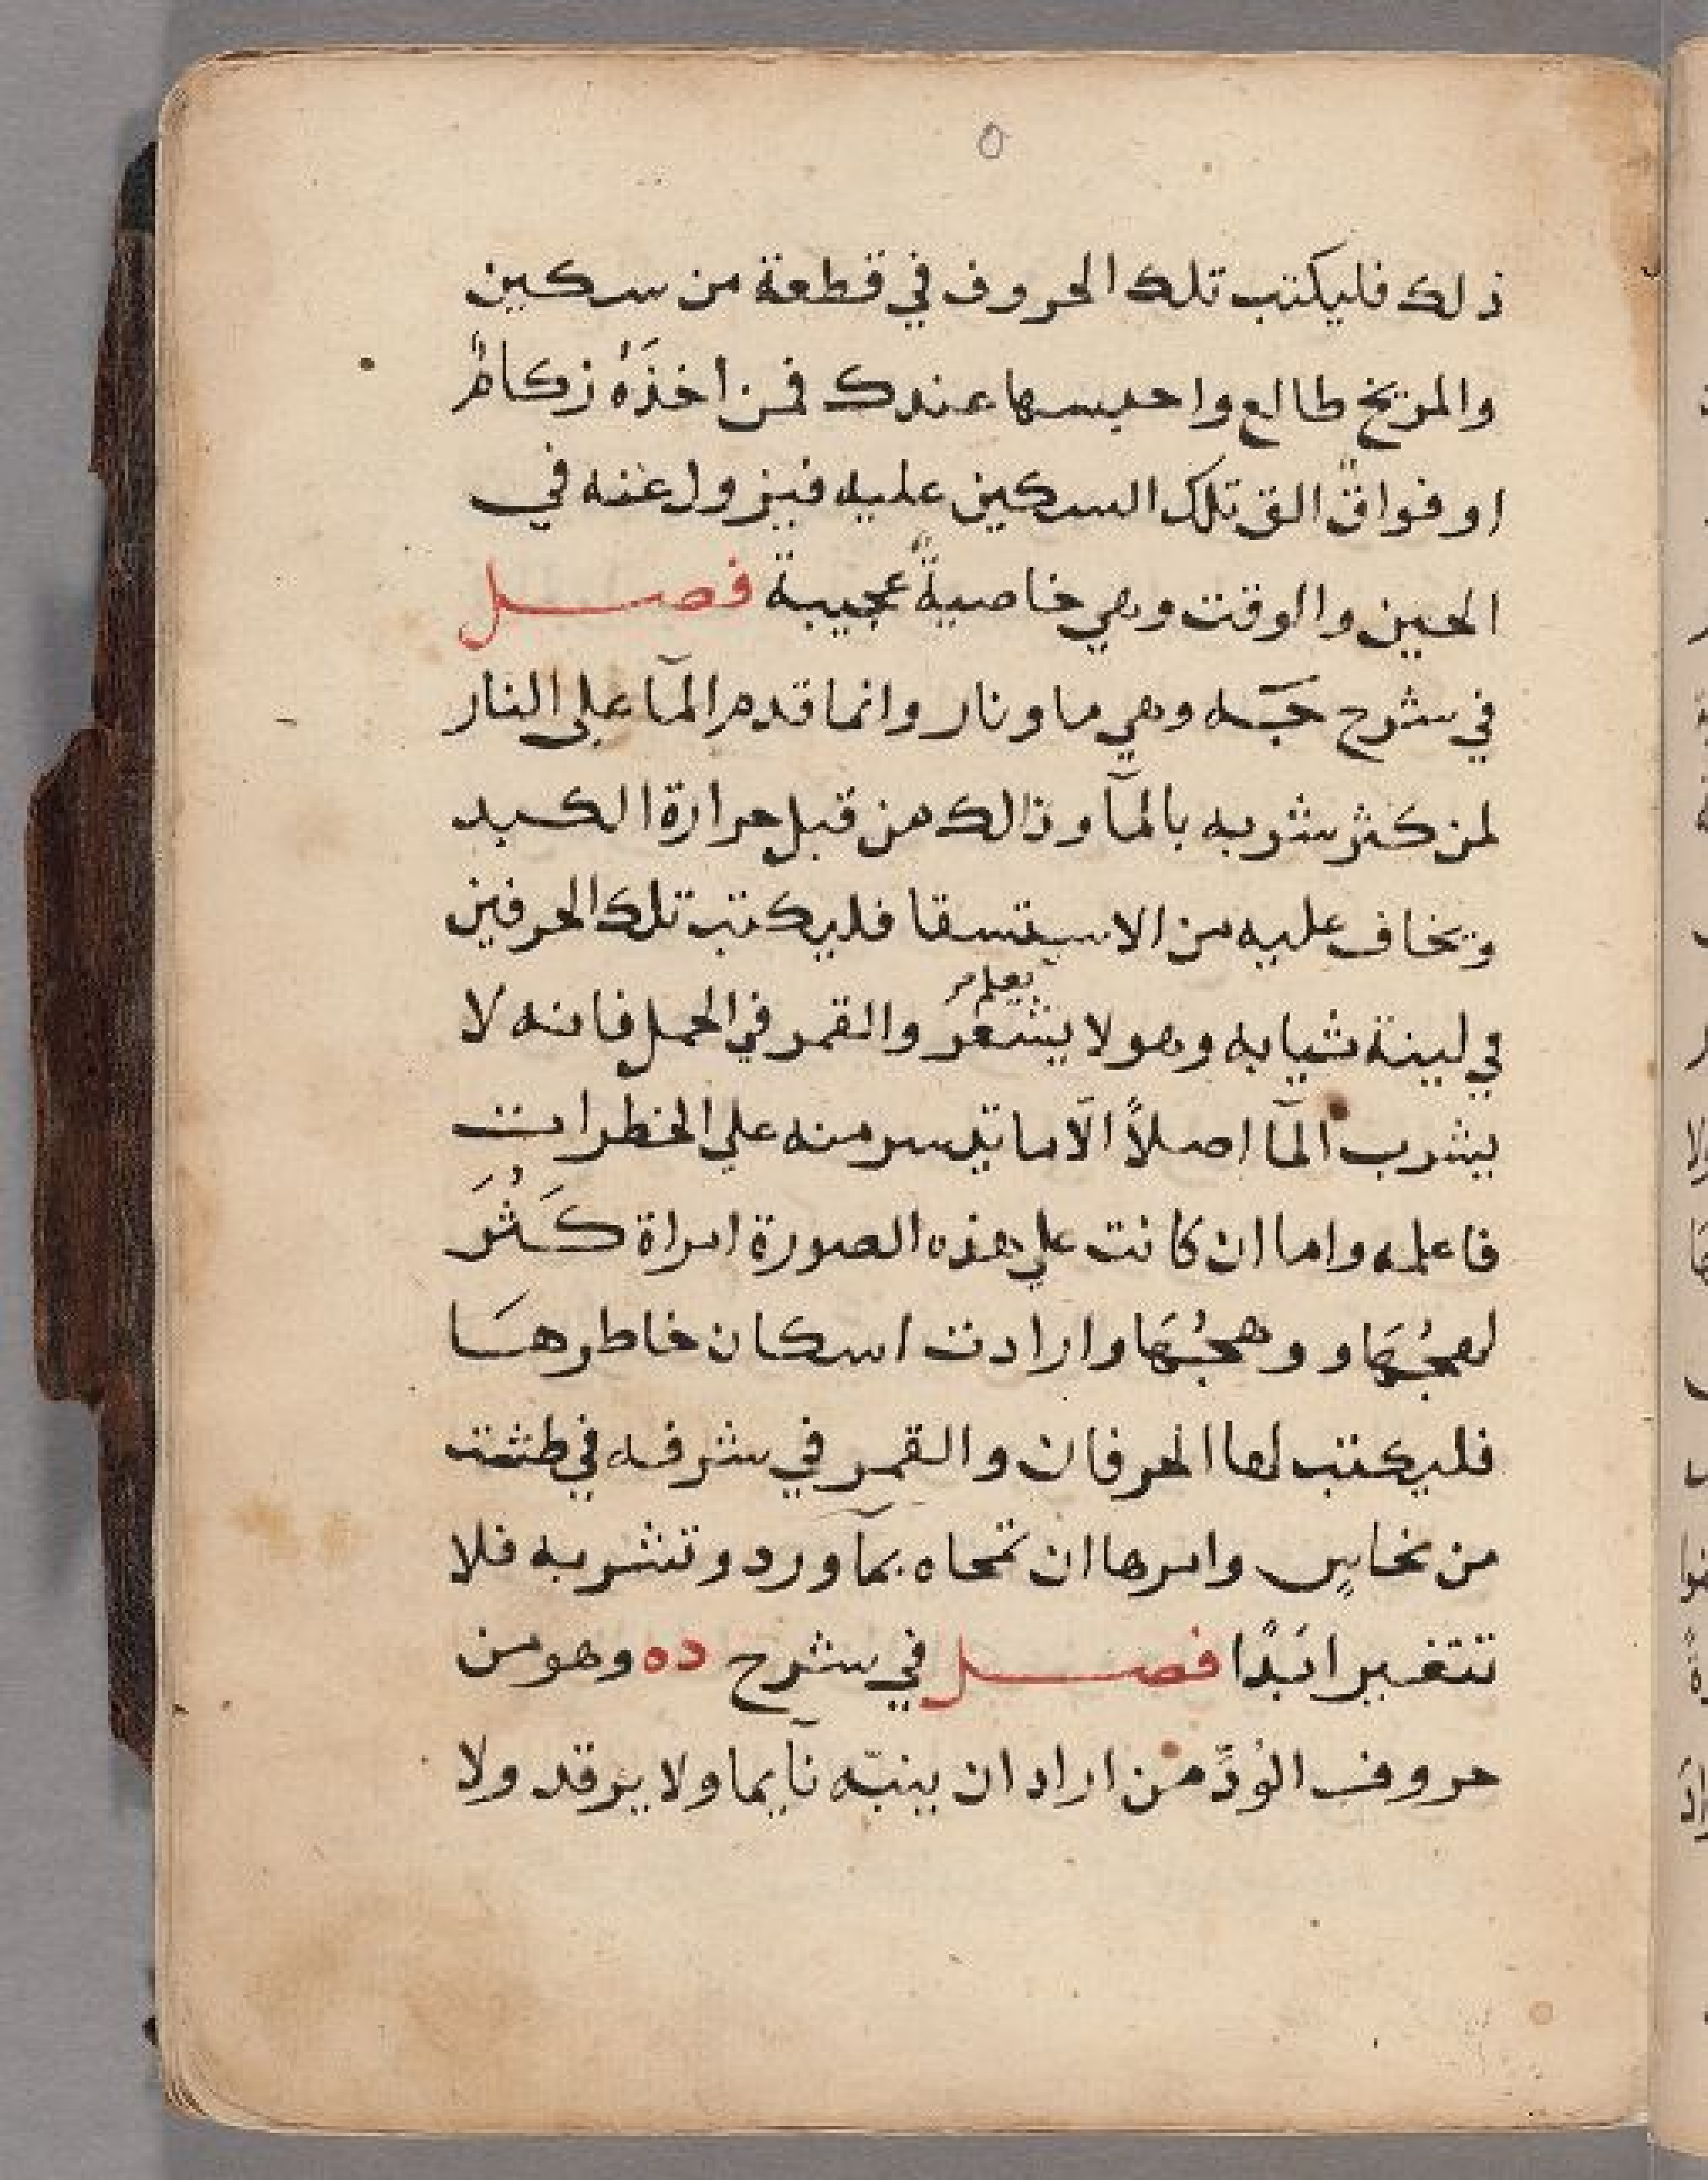 ٥
ذلك فليكتب تلك الحروف في قطعة من سكين
والمريخ طالع واحبسها عندك فمن اخذَهُ زكامٌ
او فواقٌ الق تلك السكين عليه فيزول عنه في
الحين والوقت وهي خاصيةٌ عجيبة فصل
في شرح جَـه وهي ما ونار وانما قدم المآ على النار
لمن كثر شربه بالمآ وذالك من قبل حرارة الكبد
ويخاف عليه من الاستسقا فليكتب تلك الحرفين
يعلم
في لبنة ثيابه وهو لا يشعرَ والقمر في الحمل فانه لا
يشرب المآ اصلاً الّا ما تيسر منه على الخطرات
فاعلمه واما ان كانت على هذه الصورة امراة كَثُرَ
وهجُهَا وارادت اسكان خاطرهَا
فليكتب لها الحرفان والقمر في شرفه في طشت
من نحاسٍ وامرها ان تمحاه بمآ ورد وتشربه فلا
تتغير ابَدًا فصل في شرح ده وهو من
حروف الوُدِّ من اراد ان ينبّه نآيما ولا يرقد ولا